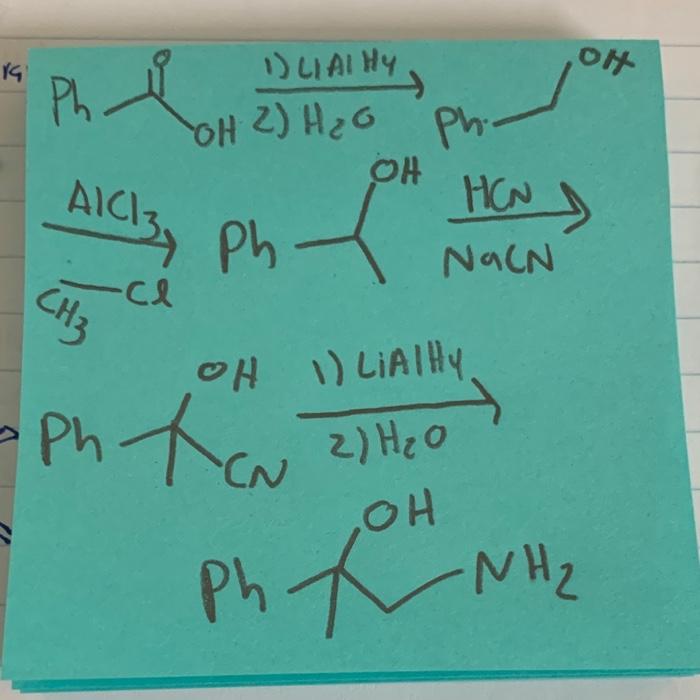 O
1) LiAlH4
OH
Ph
OH
2) H2O
Ph
AlCl3
OH
HCN
Ph
NaCN
CH3
Cl
OH
1) LiAlH4
Ph
CN
2) H2O
OH
Ph
NH2